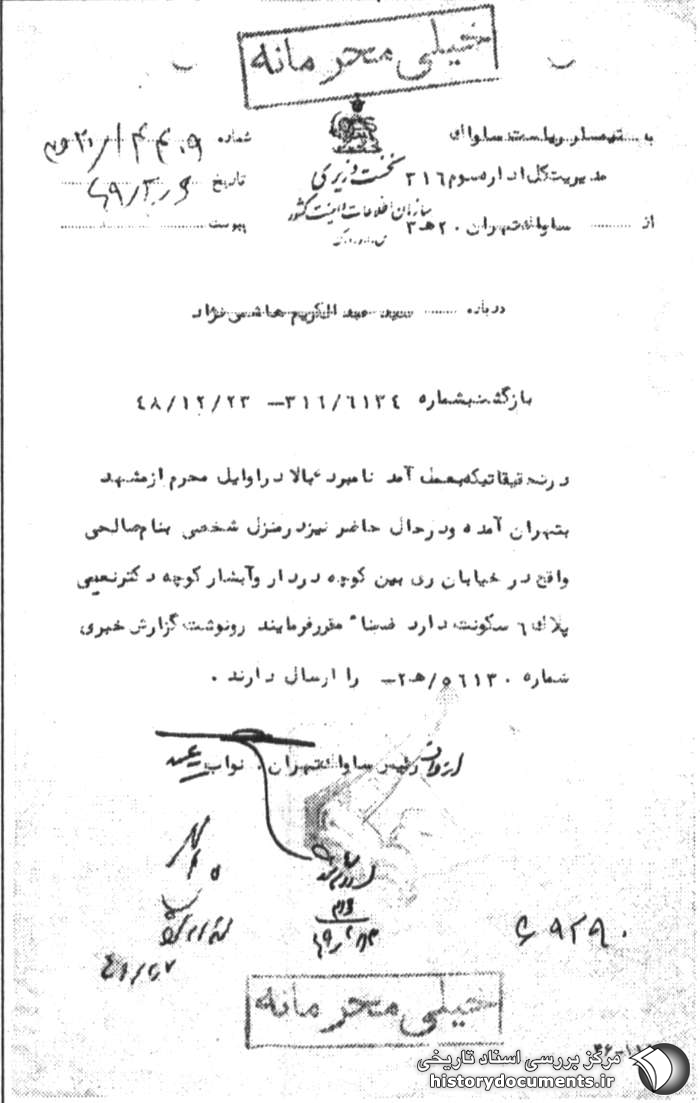 خیلی محرمانه
به تیمسار ریاست ساواک
شماره
مدیریت کل اداره سوم ۳۱۶
نخست وزیری
تاریخ ۴۹/۳/۶
سازمان اطلاعات و امنیت کشور
از ساواک تهران ۲۰ هـ ۳
س.ا.و.ا.ک
پیوست
درباره سید عبدالکریم هاشمی نژاد
بازگشت بشماره ۳۱۶/۶۱۳۴ - ۴۸/۱۲/۲۳
در تحقیقاتیکه بعمل آمد نامبرده بالا در اوایل محرم از مشهد
بتهران آمده و در حال حاضر نیز در منزل شخصی بنام صالحی
واقع در خیابان ری بین کوچه دردار و آبشار کوچه دکتر نعیمی
پلاک ۶ سکونت دارد ضمناً مقرر فرمایند رونوشت گزارش خبری
شماره ۵۶۱۳۰/هـ۲ - را ارسال دارند .
رئیس ساواک تهران . نواب
۶۹۲۹۰
خیلی محرمانه
مرکز بررسی اسناد تاریخی
historydocuments.ir